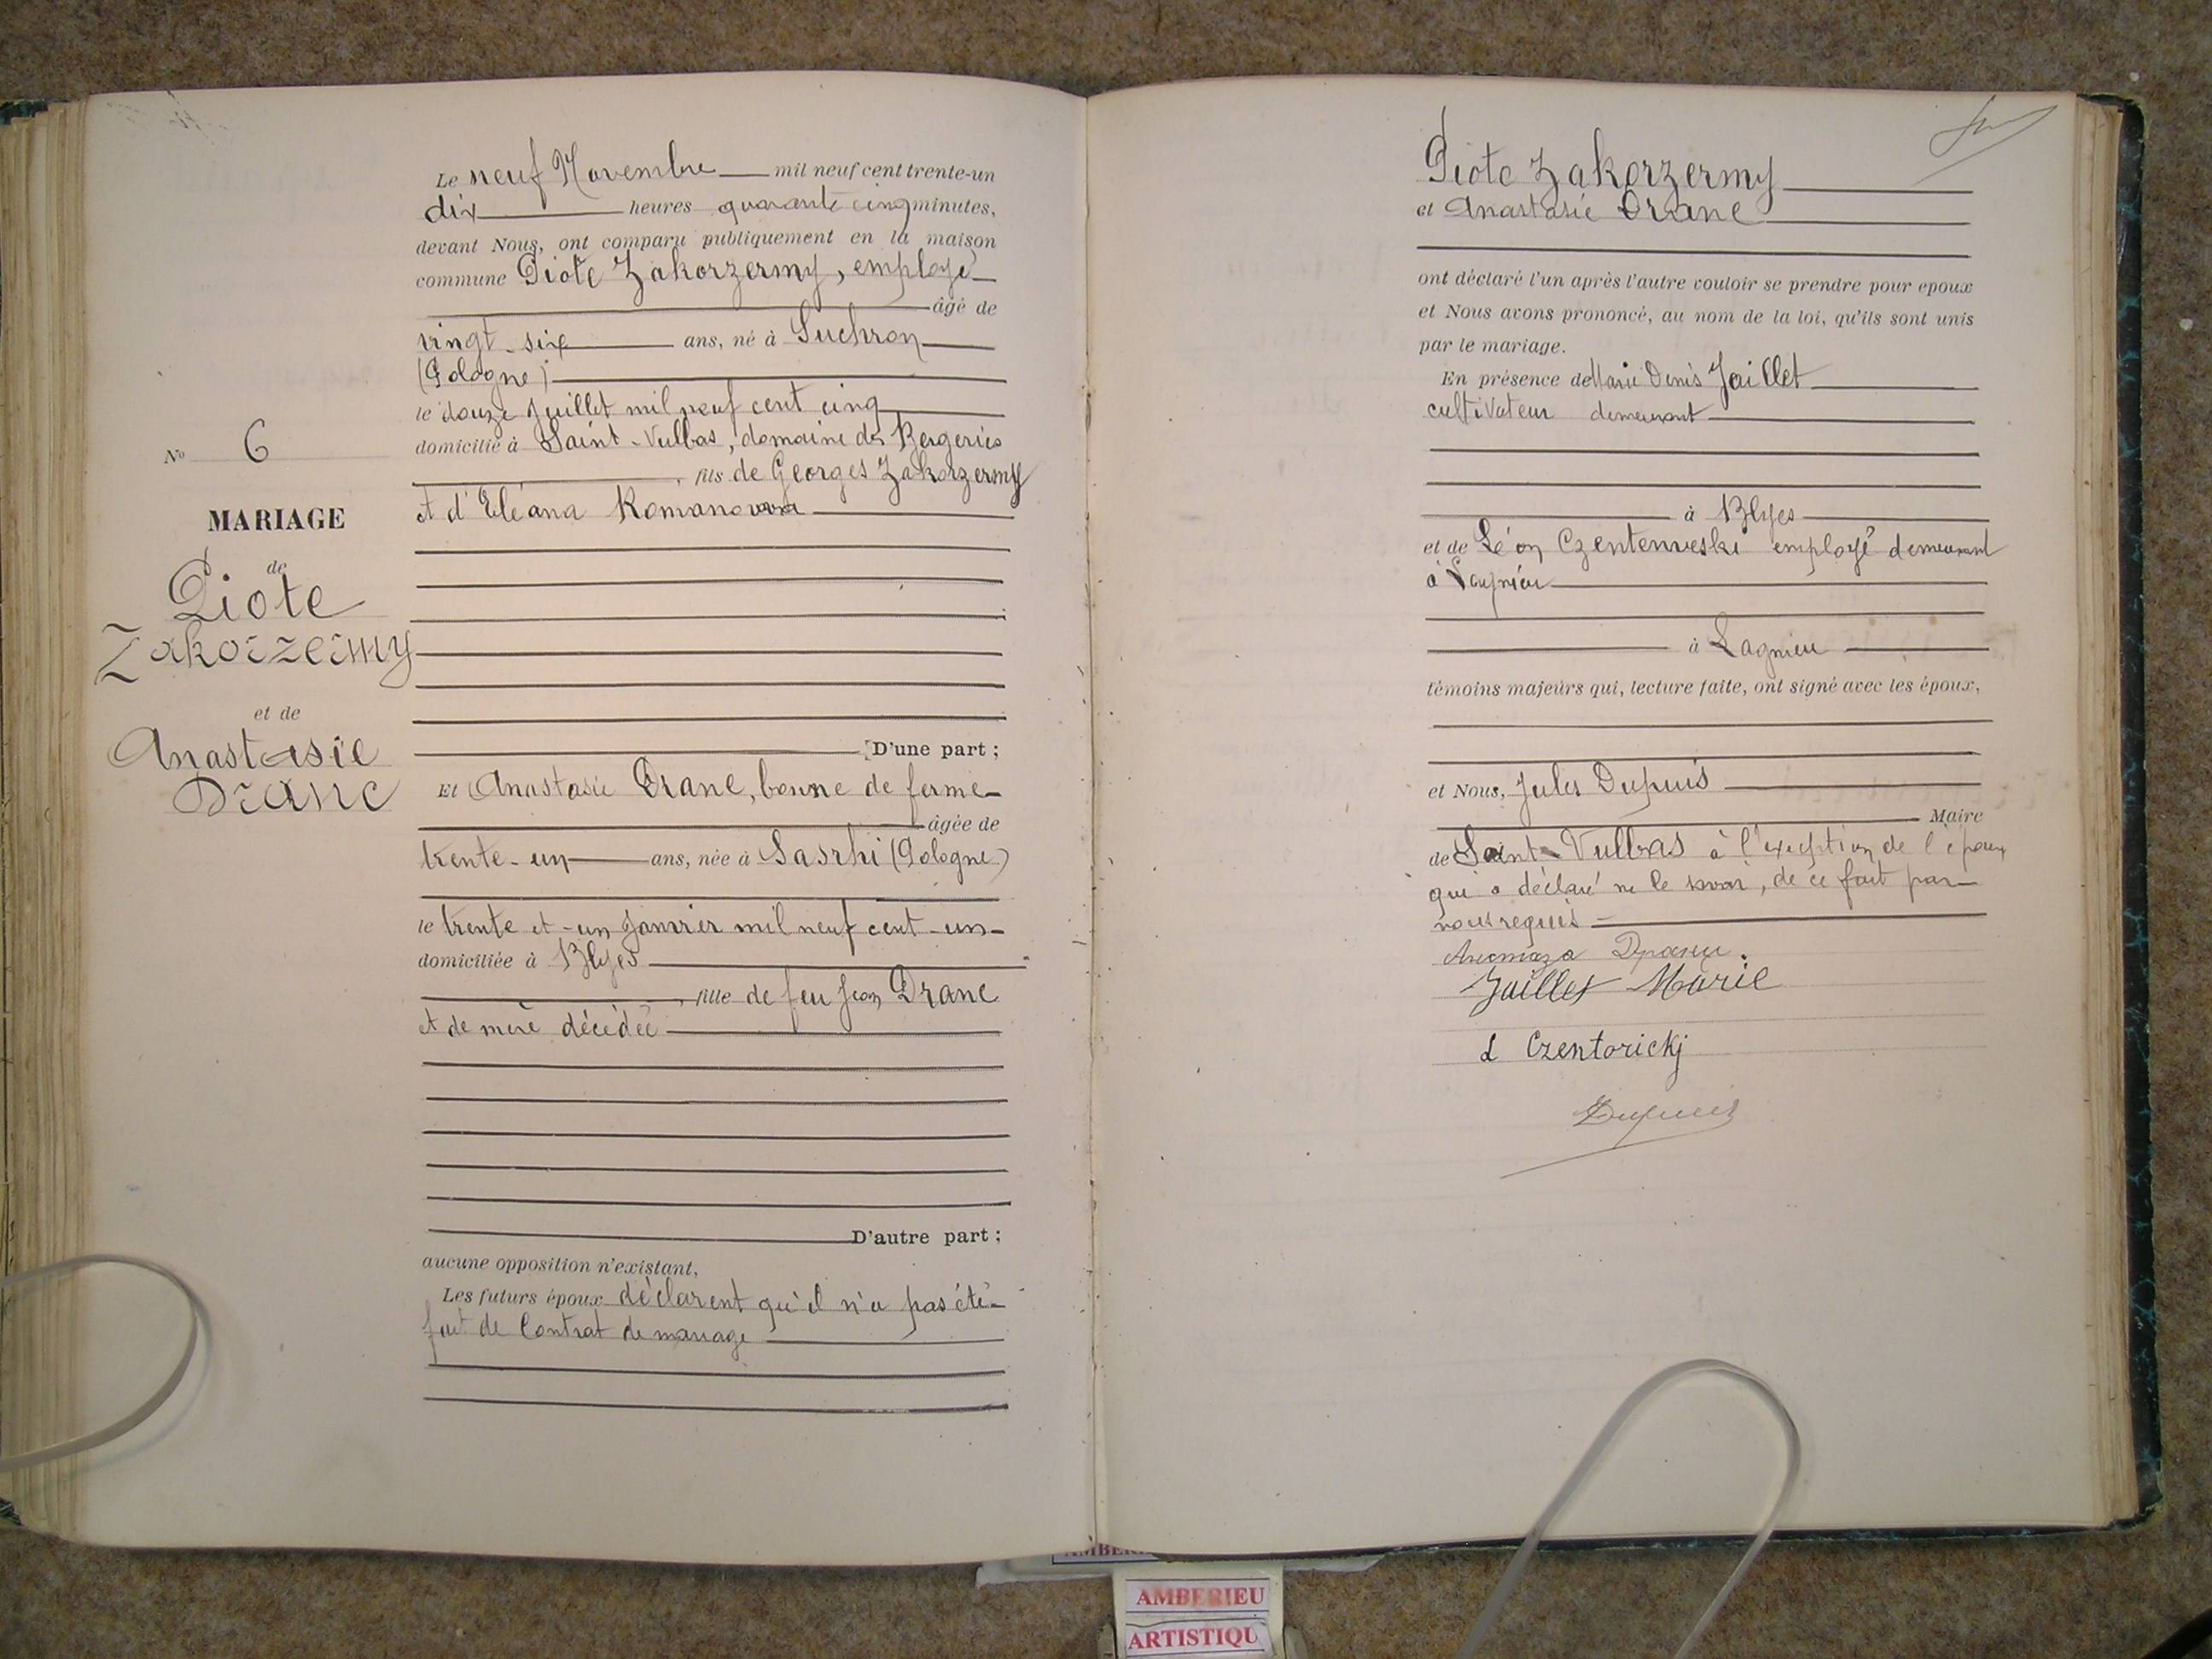 Le neuf Novembre mil neuf cent trente-un
dix heures quarante cinq minutes,
devant Nous, ont comparu publiquement en la maison
commune Piote Zakorzermy, employé
âgé de
vingt-six ans, né à Suchron
(Pologne)
le douze Juillet mil neuf cent cinq
domicilié à Saint-Vulbas, domaine des Bergeries
, fils de Georges Zakorzermy
et d'Eléana Romanowna
D'une part ;
No 6
MARIAGE
de
Piote
Zakorzermy
et de
Anastasie
Dranc
Et Anastasie Dranc, bonne de ferme
âgée de
trente-un ans, née à Sasrhi (Pologne)
le trente et-un Janvier mil neuf cent-un
domiciliée à Blyes
, fille de feu Jean Dranc
et de mère décédée
D'autre part ;
aucune opposition n'existant,
Les futurs époux déclarent qu'il n'a pas été
fait de Contrat de mariage
Piote Zakorzermy
et Anastasie Dranc
ont déclaré l'un après l'autre vouloir se prendre pour epoux
et Nous avons prononcé, au nom de la loi, qu'ils sont unis
par le mariage.
En présence de Marie Denis Jaillet
cultivateur demeurant
à Blyes
et de Léon Czentenweski employé demeurant
à Lagnieu
à Lagnieu
témoins majeurs qui, lecture faite, ont signé avec les époux,
et Nous, Jules Dupuis
Maire
de Saint-Vulbas à l'exception de l'époux
qui a déclaré ne le savoir, de ce fait par
nous requis
Jaillet Marie
L Czentorickj
Dupuis
AMBERIEU
ARTISTIQU